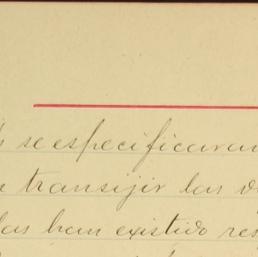 se especificaran
transijir las
las han existido res